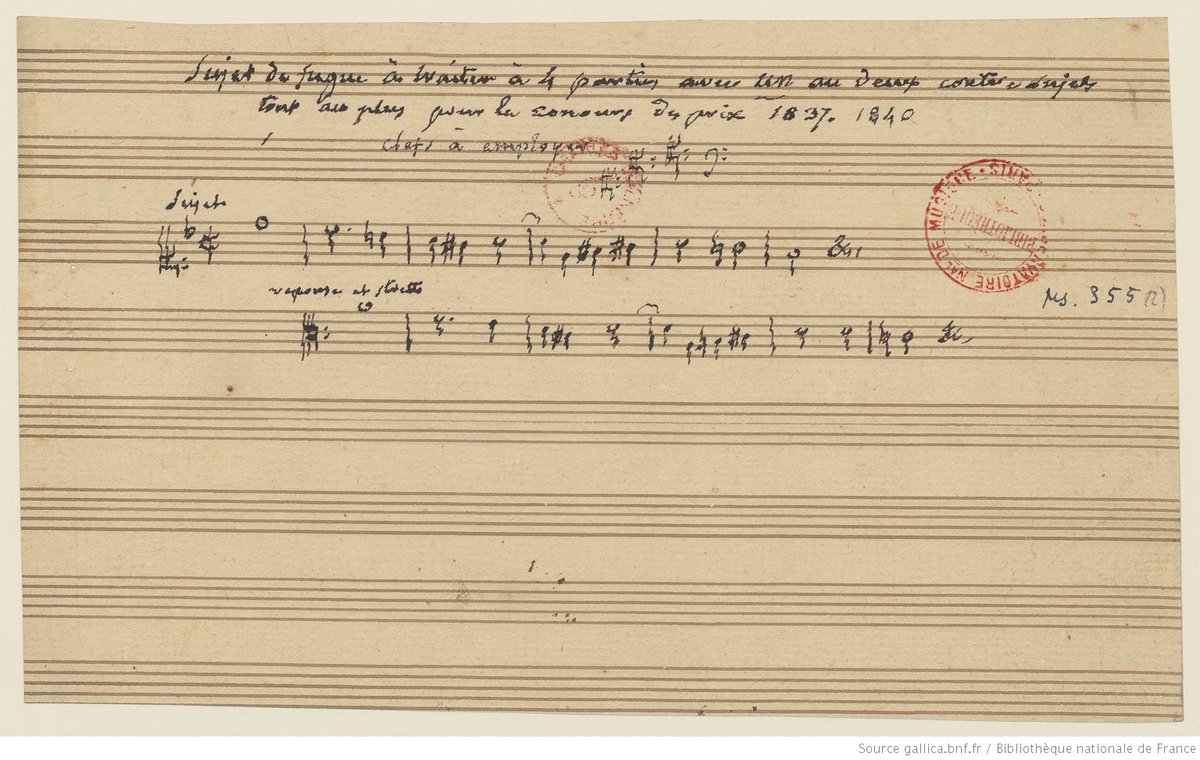 Sujet de fugue à traiter à 4 parties avec un ou deux contre-sujets
tout au plus pour le concours de prix 1837. 1840
Clefs à employer
Sujet
&c,
reponse et stretto
&c,
Ms. 355 (2)
Source gallica.bnf.fr / Bibliothèque nationale de France